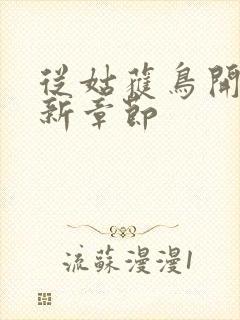 從姑獲鳥開
新章節
流蘇漫漫1